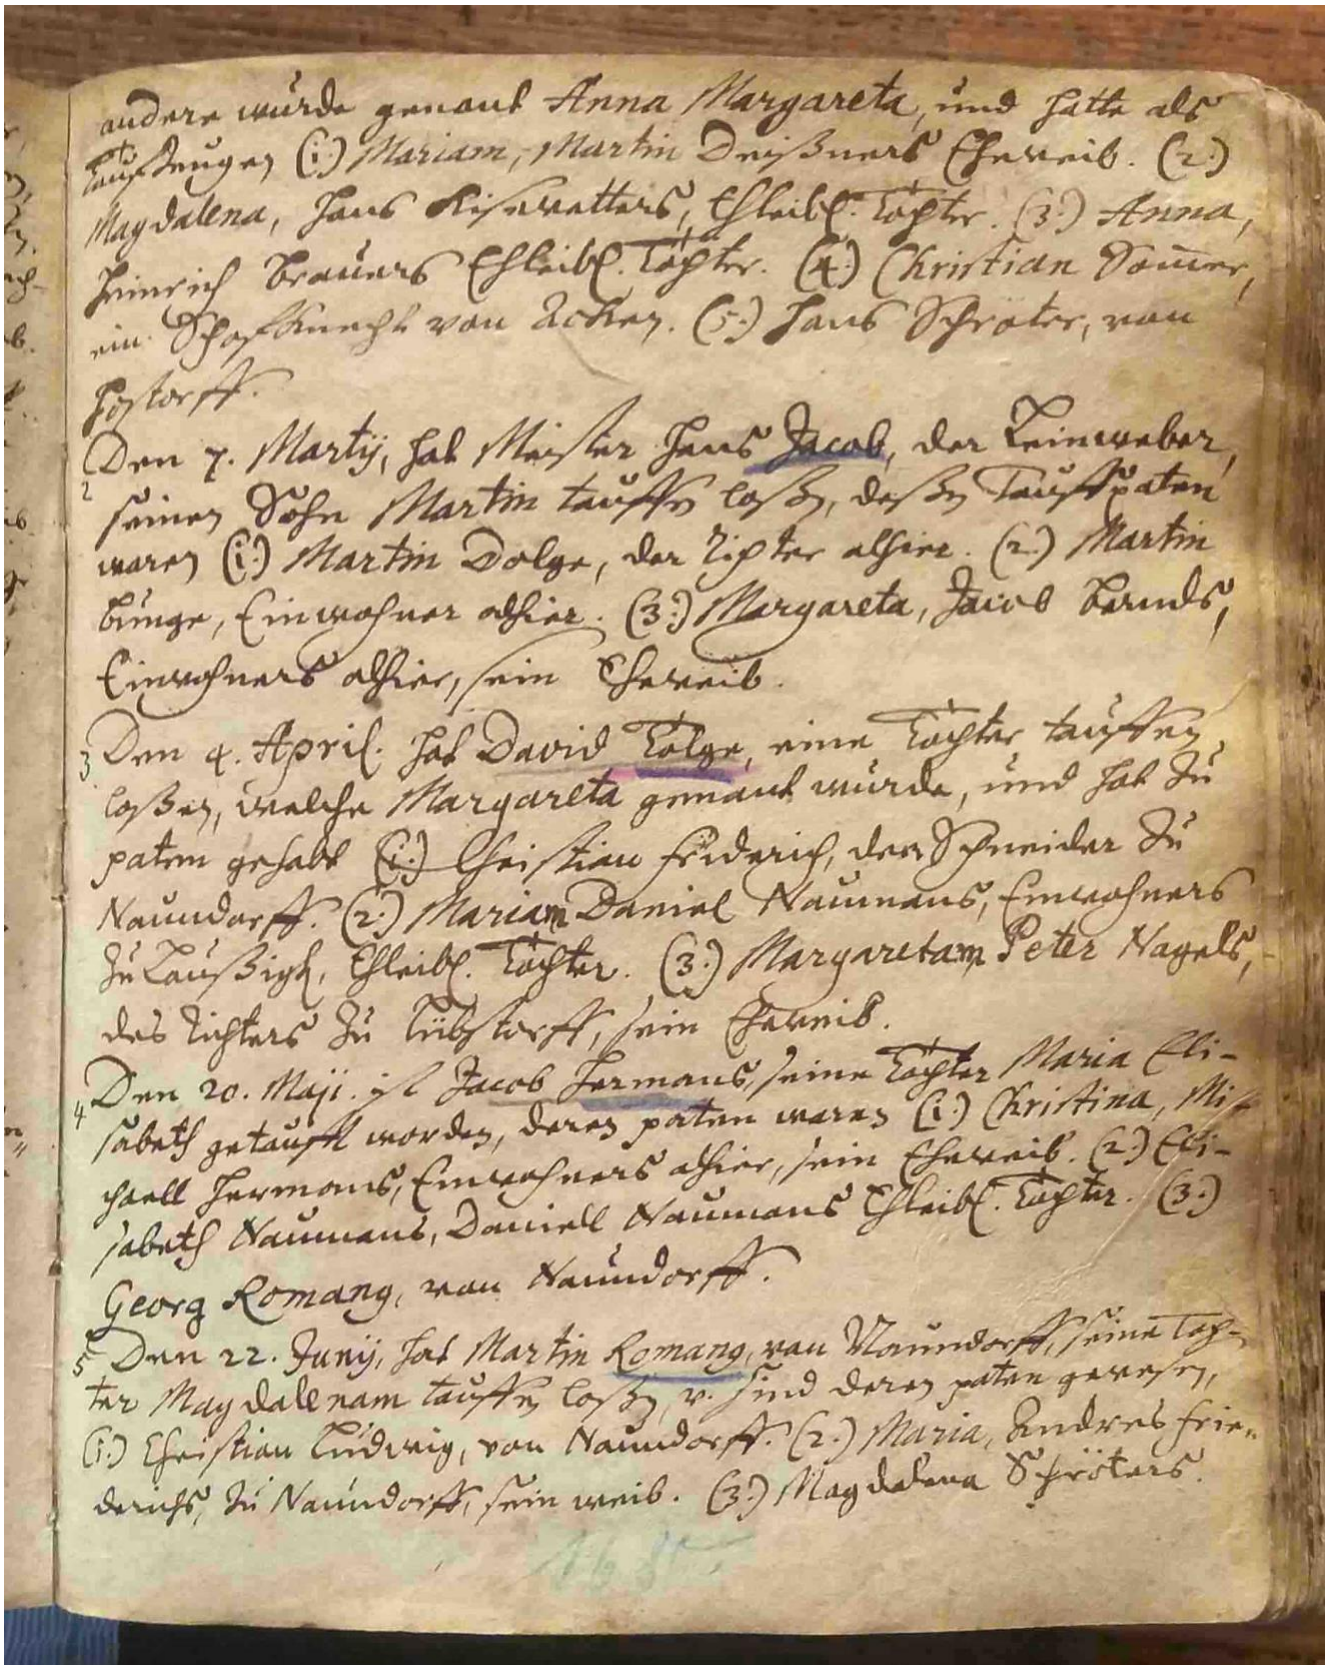 andere wurde genant Anna Margareta, und hatte als
Taufzeugen (1.) Mariam, Martin Deißners Eheweib. (2.)
Magdalena, Hans Kisewetters, Ehleibl. Tochter. (3.) Anna,
Heinrich Brauers Ehleibl. Tochter. (4.) Christian Som̄er,
ein Schafknecht von Acken. (5.) Hans Schröter, von
Den 7. Martij, hat Meister Hans Jacob, der Leinweber,
2
seinen Sohn Martin tauffen laßen, deßen Tauffpaten
waren (1.) Martin Dolge, der Richter alhier. (2.) Martin
Bunge, Einwohner alhier. (3.) Margareta, Jacob Bernds,
Einwohners alhier, sein Eheweib.
3 Den 4. April. hat David Tolge, eine Tochter tauffen
laßen, welche Margareta genant wurde, und hat zu
paten gehabt (1.) Christian Friderich, der Schneider zu
Naundorff. (2.) Mariam Daniel Naumans, Einwohners
zu Laußigk, Ehleibl. Tochter. (3.) Margaretam Peter Nagels,
des Richters zu Libstorff, sein Eheweib.
4 Den 20. Maji. ist Jacob Hermans, seine Tochter Maria Eli-
sabeth getaufft worden, deren paten waren (1.) Christina, Mi-
chaell Hermans, Einwohners alhier, sein Eheweib. (2.) Eli-
sabeth Naumans, Daniell Naumans Ehleibl. Tochter. (3.)
Georg Romang, von Naundorff.
5 Den 22. Junij, hat Martin Romang, von Naundorff, seine Toch-
ter Magdalenam tauffen laßen, v. sind deren paten gewesen,
(1.) Christian Ludwig, von Naundorff. (2.) Maria, Andres Frie-
derichs, zu Naundorff, sein weib. (3.) Magdalena Schröters.